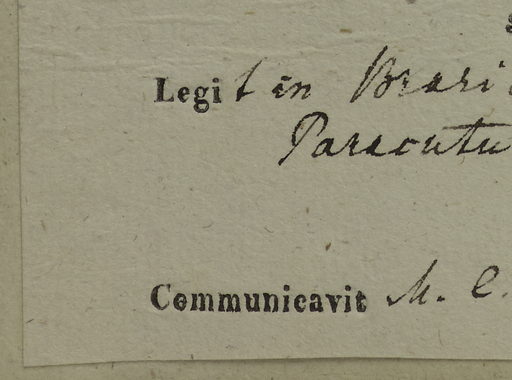 Legit in Brasi
Paracutu
Communicavit M. C.